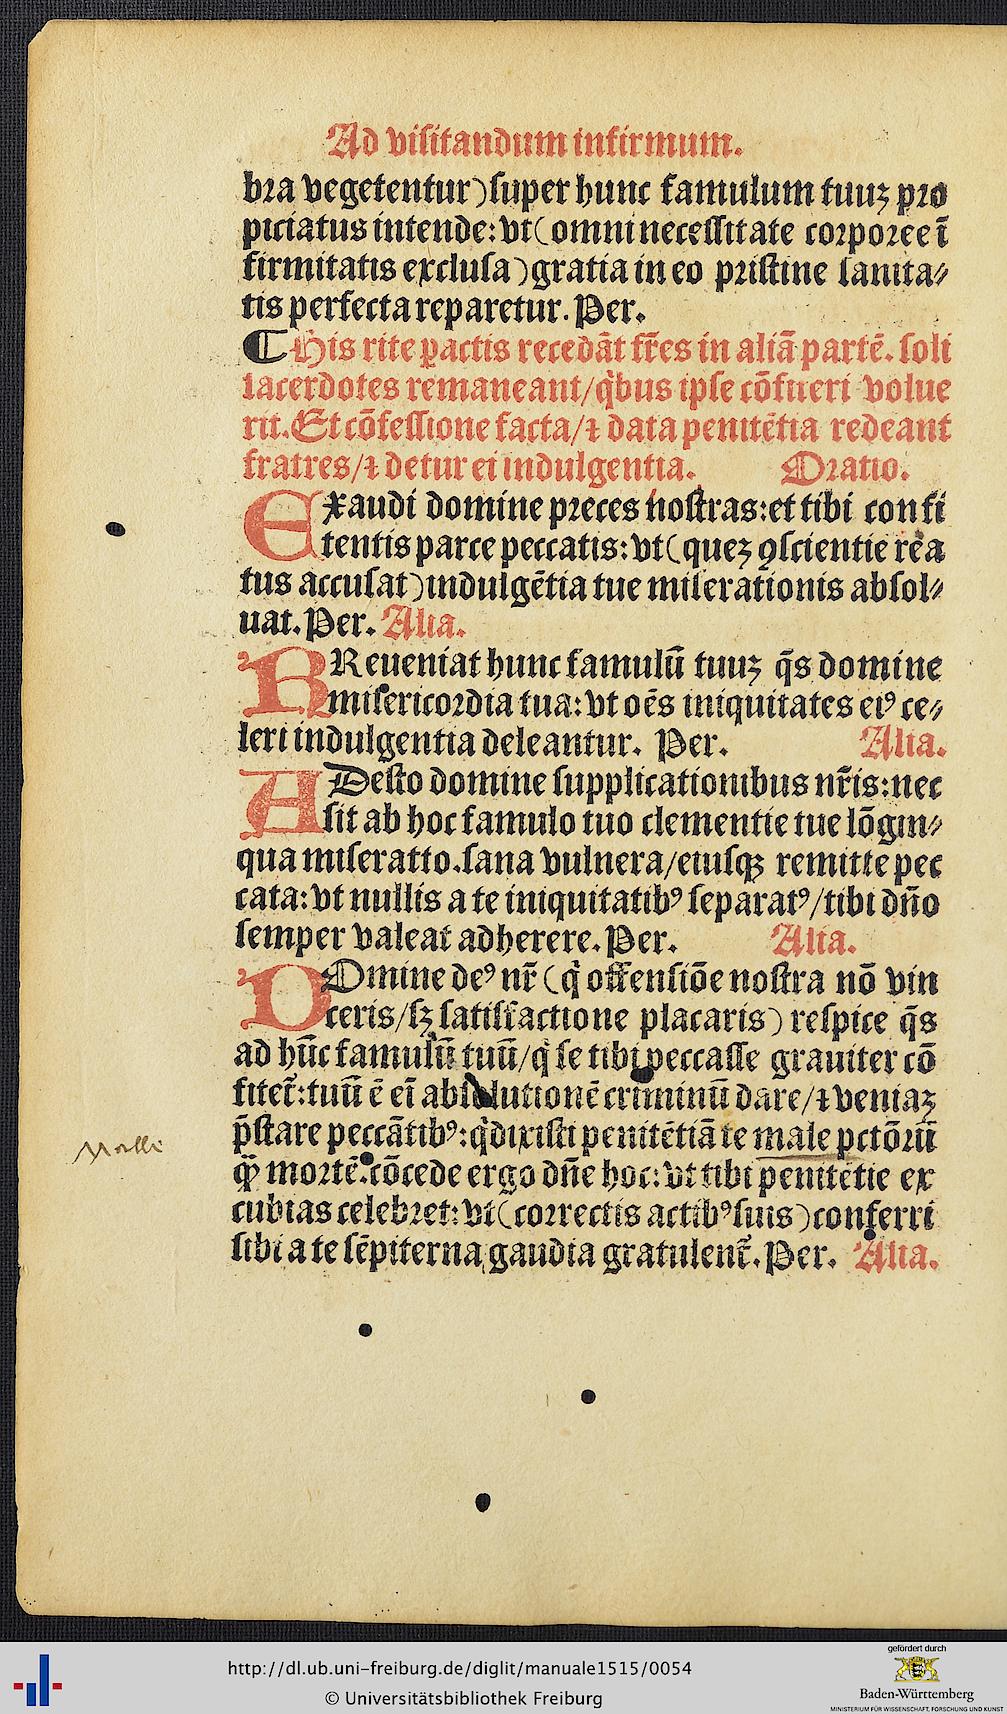 Ad visitandum infirmum.
bra vegetentur) super hunc famulum tuuꝫ pro
piciatus intende: vt (omni necessitate corporee ī
firmitatis exclusa) gratia in eo pristine sanita⸗
tis perfecta reparetur. Per.
¶ His rite ꝑactis recedāt fr̄es in aliā partē. soli
sacerdotes remaneant/ qͥbus ipse cōfiteri volue
rit. Et cōfessione facta/ ⁊ data penitētia redeant
fratres/ ⁊ detur ei indulgentia. Oratio.
Exaudi domine preces nostras: et tibi confi
tentis parce peccatis: vt (queꝫ ꝯscientie rea
tus accusat) indulgētia tue miserationis absol⸗
uat. Per. Alia.
PReueniat hunc famulū tuuꝫ q̄s domine
misericordia tua: vt oēs iniquitates eiꝰ ce⸗
leri indulgentia deleantur. Per. Alia.
ADesto domine supplicationibus nr̄is: nec
sit ab hoc famulo tuo clementie tue lōgin⸗
qua miseratio. sana vulnera/ eiusqꝫ remitte pec
cata: vt nullis a te iniquitatibꝰ separatꝰ/ tibi dn̄o
semper valeat adherere. Per. Alia.
DOmine deꝰ nr̄ (qͥ offensiōe nostra nō vin
ceris/ sꝫ satisfactione placaris) respice q̄s
ad hūc famulū tuū/ qͥ se tibi peccasse grauiter cō
fitet᷑: tuū ē ei absolutionē criminū dare/ ⁊ veniaꝫ
p̄stare peccātibꝰ: qͥ dixisti penitētiā te male pctōrū
qꝫ̄ mortē. cōcede ergo dn̄e hoc: vt tibi penitētie ex
cubias celebret: vt (correctis actibꝰ suis) conferri
sibi a te sēpiterna gaudia gratulent᷑. Per. Alia.
Malle
http://dl.ub.uni-freiburg.de/diglit/manuale1515/0054
© Universitätsbibliothek Freiburg
gefördert durch
Baden-Württemberg
MINISTERIUM FÜR WISSENSCHAFT, FORSCHUNG UND KUNST